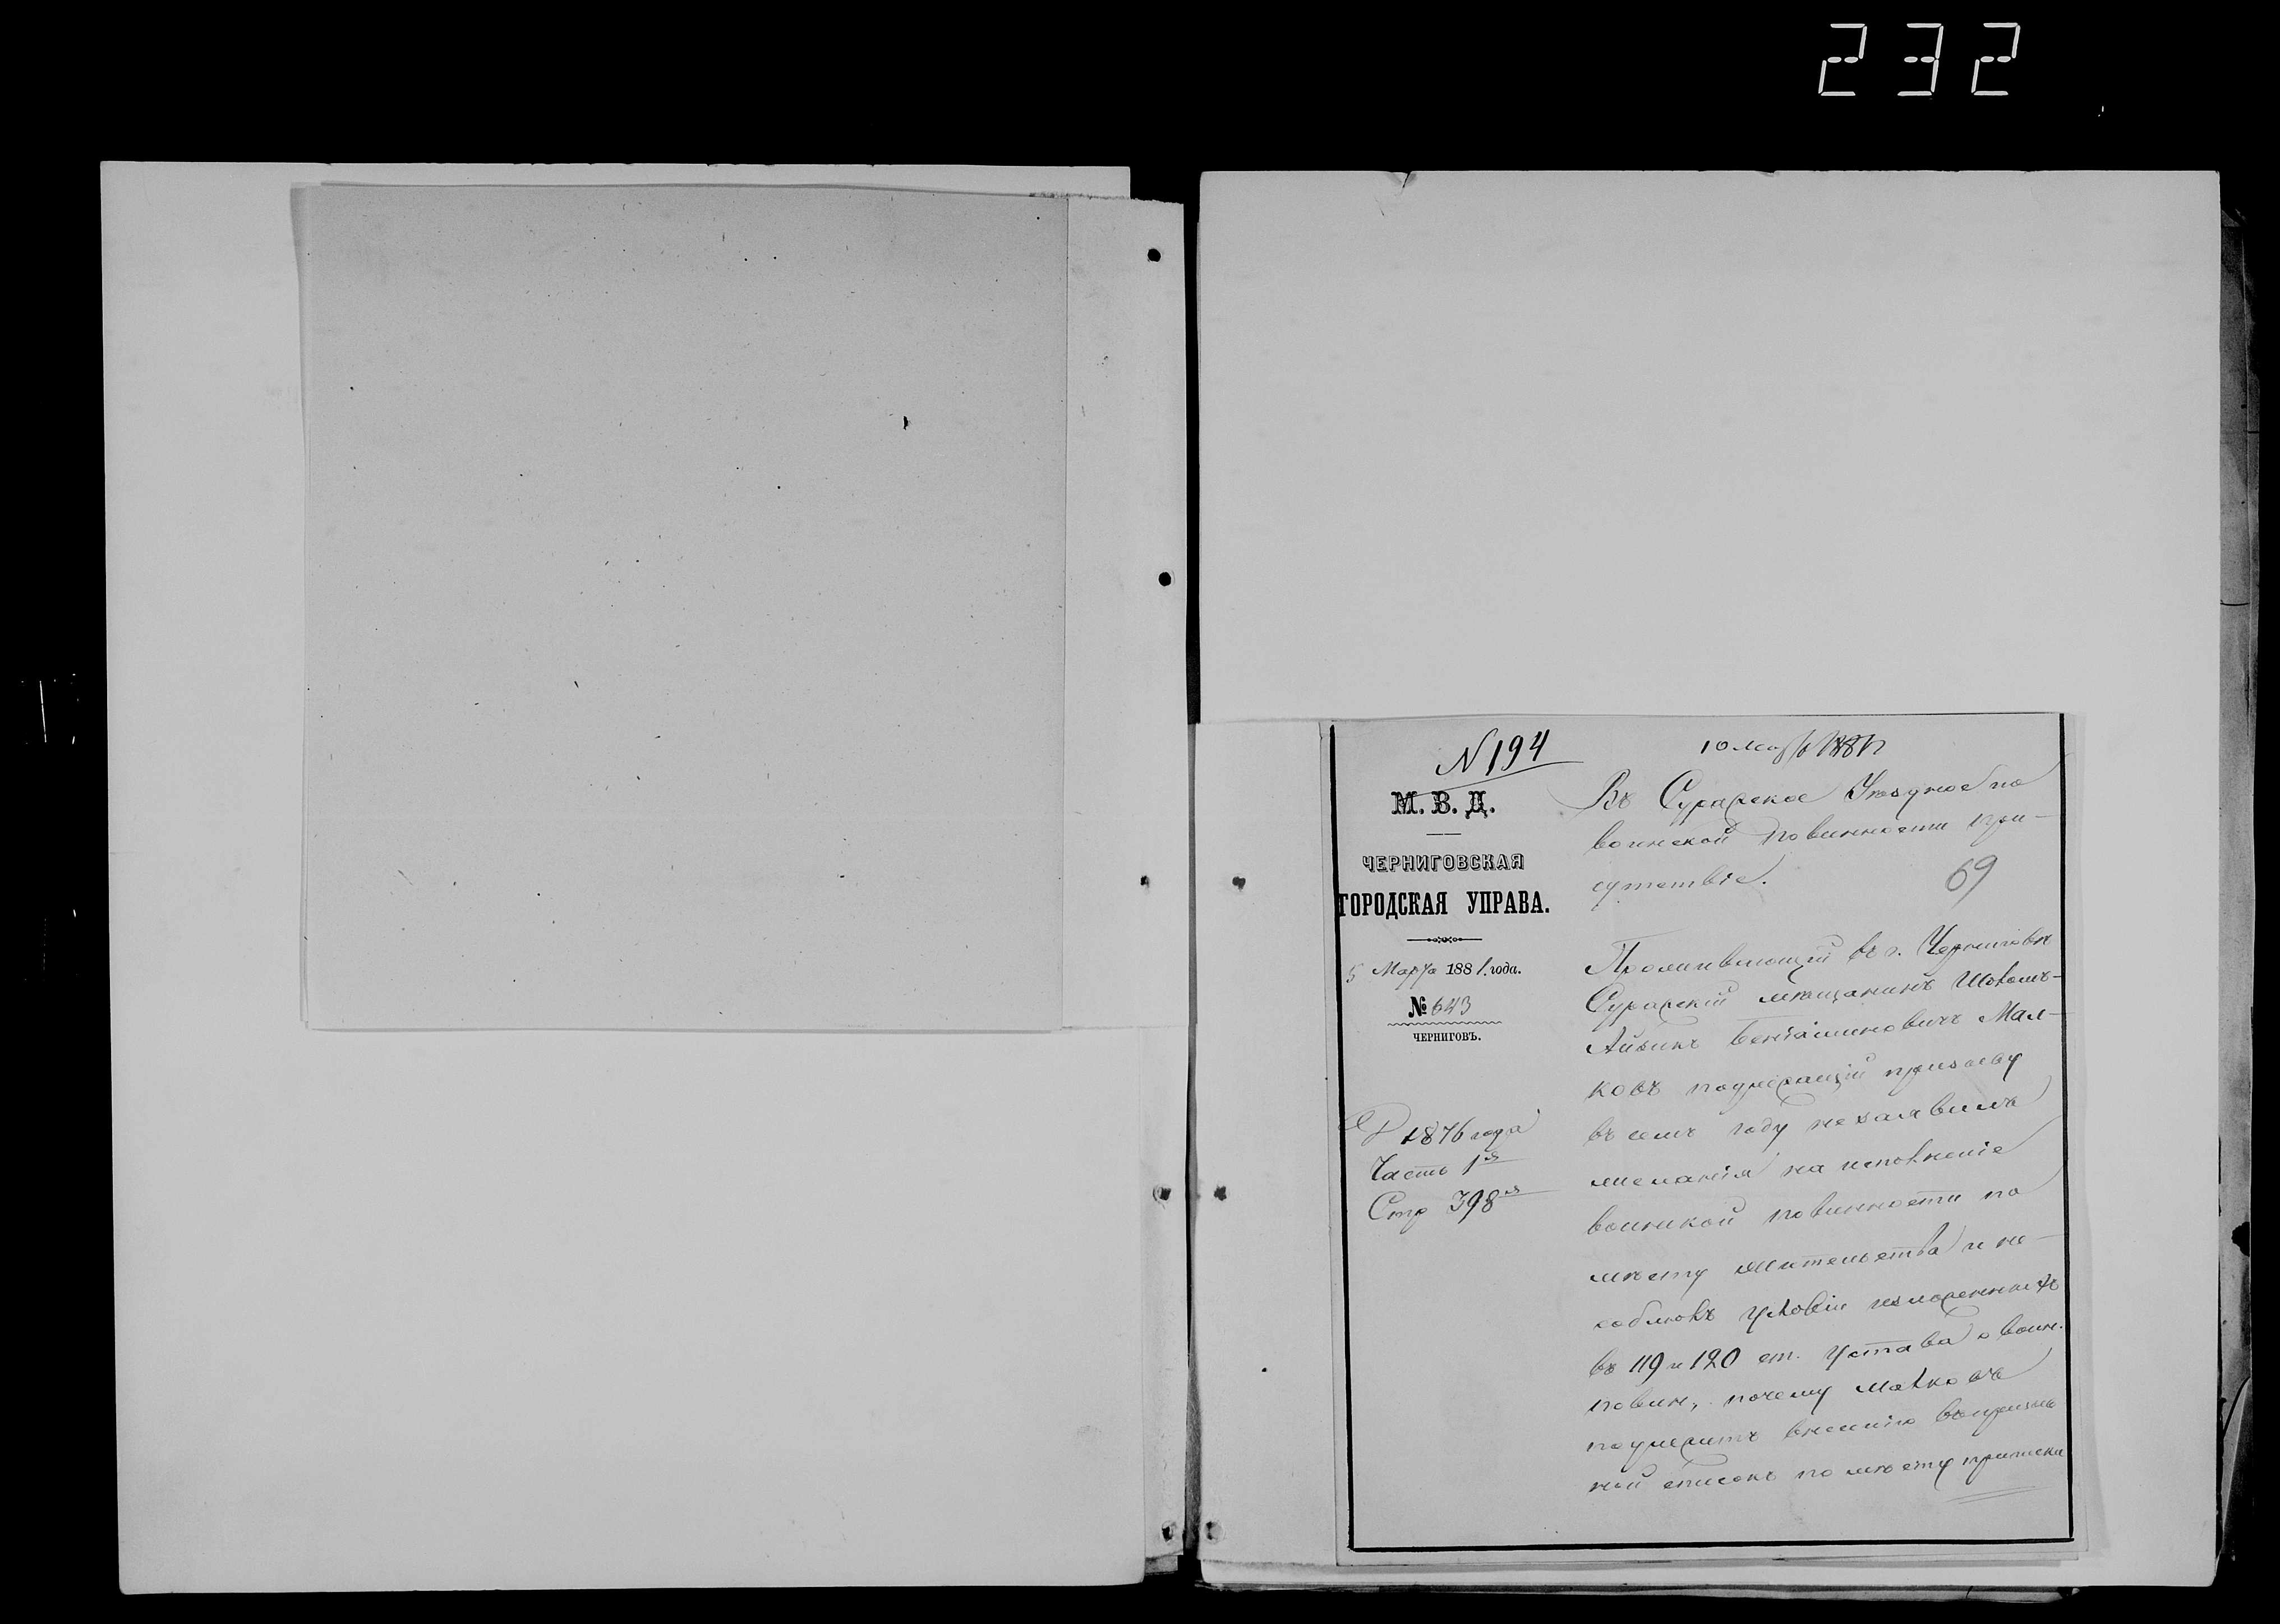 232
N 194
10 Марта 1881
М. В. Д.
ЧЕРНИГОВСКАЯ
ГОРОДСКАЯ УПРАВА.
5 Марта 1881. года.
№ 643
ЧЕРНИГОВЪ.
1876 года
Часть 1я
Стр 398я
Въ Суражское Уѣздное по
воинской повинности при-
сутствіе.
69
Проживающій въ г. Черниговѣ
Суражскій мѣщанинъ Шоломъ-
Айзикъ Беніаминовичъ Мал-
ковъ подлежащій призыву
въ семъ году не заявилъ
желанія на исполненіе
воинской повинности по
мѣсту жительства и не
соблюлъ условій изложенныхъ
въ 119 и 120 ст. Устава о воин.
повин., почему Малковъ
подлежитъ внесенію въ призыв
ной списокъ по мѣсту приписки